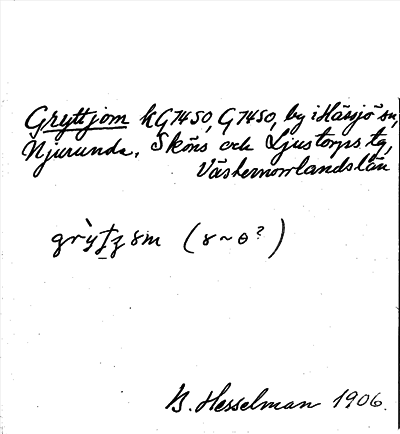 Gryttjom kG7450, G7450, by i Hässjö sn,
Njurunda, Sköns och Ljustorps tg,
Västernorrlands län
(ɤ ~ ɵ ?)
B. Hesselman 1906.